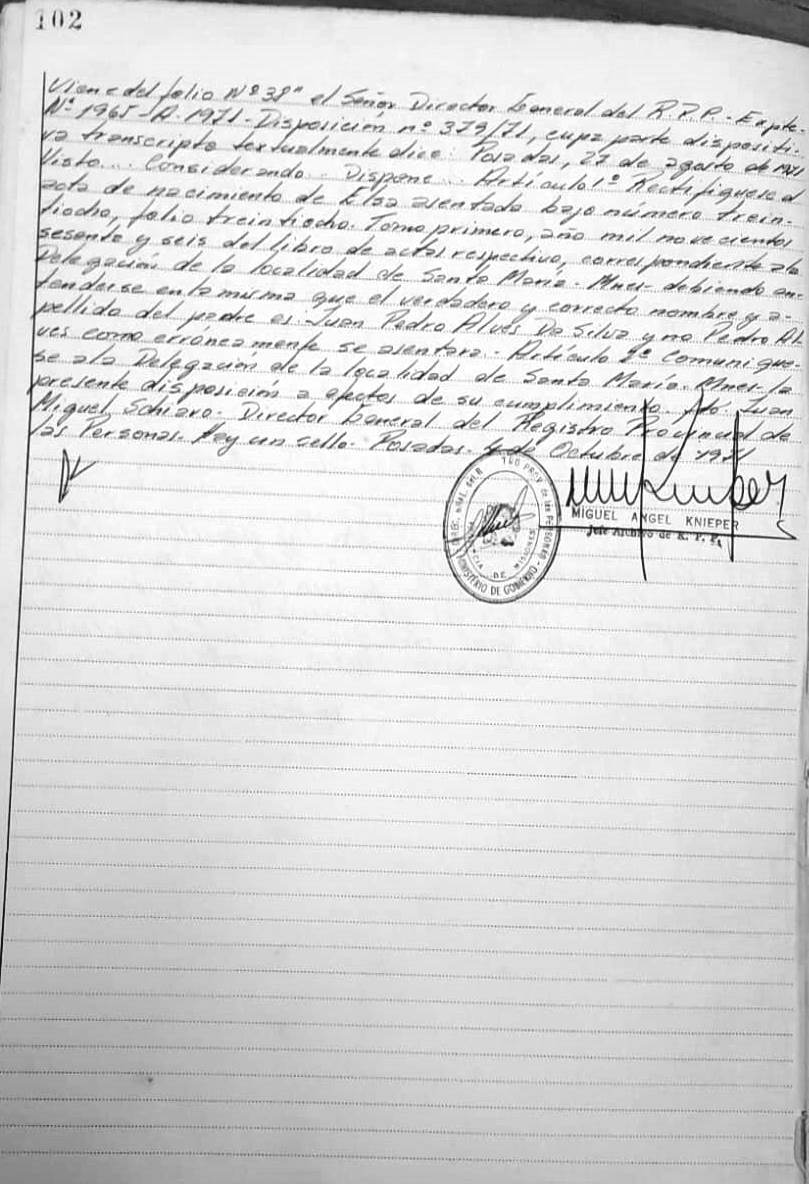 102
Viene del folio Nº 38" el Señor Director General del R.P.P.- Expte.
Nº 1965-A-1971- Disposición nº 379/71, cuya parte dispositi-
va transcripto textualmente dice: Posadas, 27 de agosto de 1971
Visto... Considerando... Dispone... Artículo 1º Rectifíquese el
acta de nacimiento de Elsa asentada bajo número trein-
tiocho, folio treintiocho. Tomo primero, año mil novecientos
sesenta y seis del libro de actas respectivo, correspondiente a la
Delegación de la localidad de Santa María- Mnes- debiendo en-
tenderse en la misma que el verdadero y correcto nombre y a-
pellido del padre es Juan Pedro Alves Da Silva y no Pedro Al-
ves como erróneamente se asentara.- Artículo 2º Comuníque-
se a la Delegación de la localidad de Santa María. Mnes- la
presente disposición a efectos de su cumplimiento. Fdo. Juan
Miguel Schiavo- Director General del Registro Provincial de
las Personas. Hay un sello. Posadas. 4 de Octubre de 1971
MIGUEL ANGEL KNIEPER
Jefe Archivo de R. P. P.
PROV de las PERSONAS
DE MISIONES
MINISTERIO DE GOBIERNO